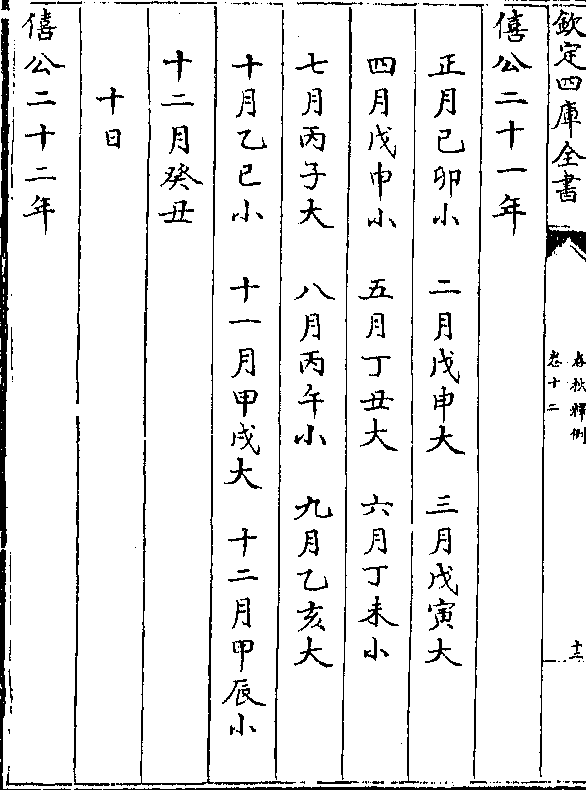 欽定四庫全書
春秋釋例
卷十二
十三
僖公二十一年
正月己卯小 二月戊申大 三月戊寅大
四月戊申小 五月丁丑大 六月丁未小
七月丙子大 八月丙午小 九月乙亥大
十月乙巳小 十一月甲戌大 十二月甲辰小
十二月癸丑
十日
僖公二十二年